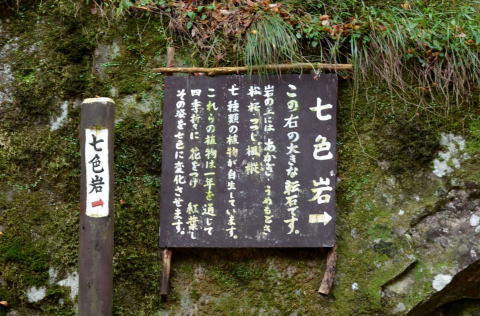 七色岩
この右の大きな転石です。
岩の上には、あかぎ、うめもどき
松、桜、つつじ、楓、樅
七種類の植物が自生しています。
これらの植物は一年を通じて
四季折々に花をつけ紅葉し
その姿を七色に変化させます。
七色岩